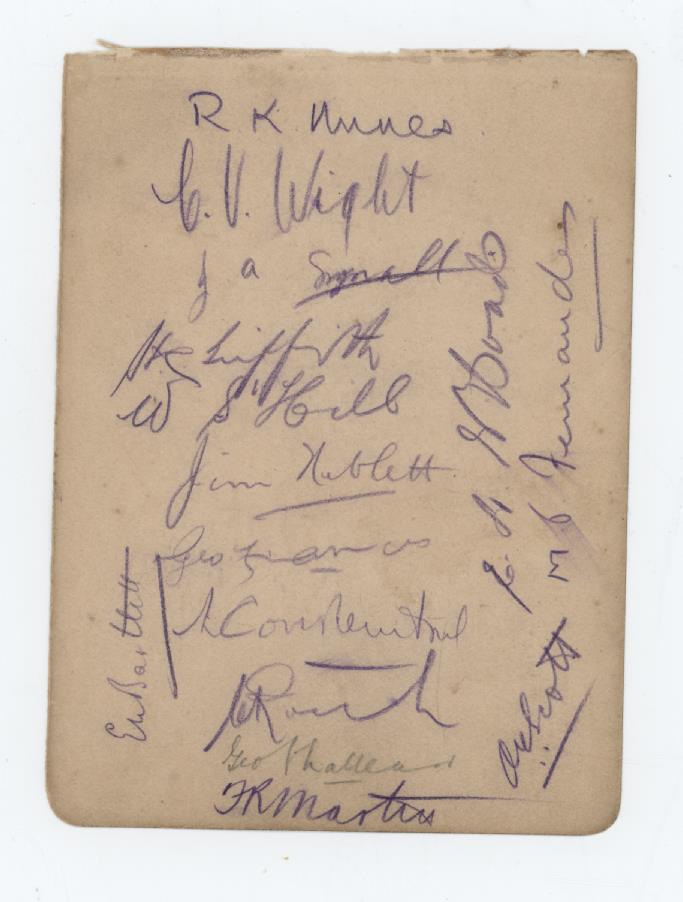 R K Nunes
C. V. Wight
J a Small
H C Griffith
W S' Hill
Jim Neblett
Geo Francis
L Constantine
C Roach
Geo Challenor
F R Martin
E L Bartlett
E. L. G. Hoad
M P Fernandes
O C Scott